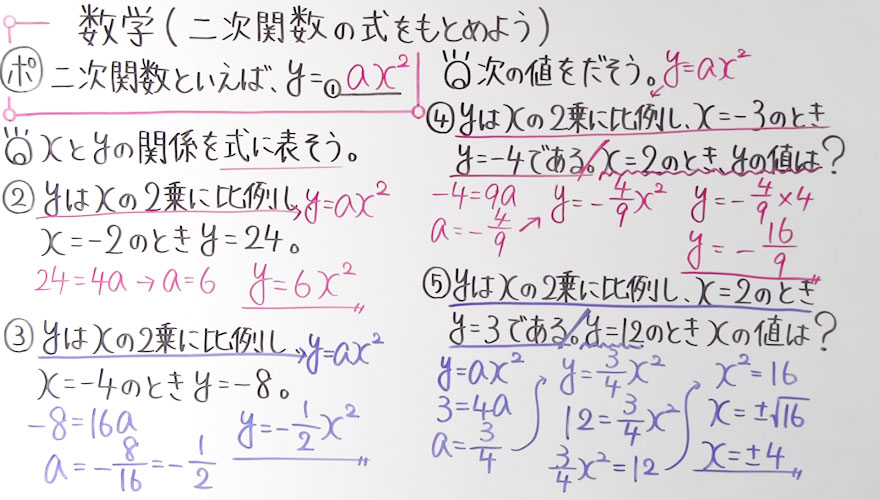 数学(二次関数の式をもとめよう)
ポ 二次関数といえば、y=①ax²
xとyの関係を式に表そう。
②yはxの2乗に比例し、→y=ax²
x=-2のときy=24。
24=4a→a=6 y=6x²
③yはxの2乗に比例し、→y=ax²
x=-4のときy=-8。
-8=16a
a=-8/16=-1/2
y=-1/2x²
次の値をだそう。y=ax²
④yはxの2乗に比例し、x=-3のとき
y=-4である。x=2のとき、yの値は?
-4=9a
a=-4/9
y=-4/9x²
y=-4/9×4
y=-16/9
⑤yはxの2乗に比例し、x=2のとき
y=3である。y=12のときxの値は?
y=ax²
3=4a
a=3/4
y=3/4x²
12=3/4x²
3/4x²=12
x²=16
x=±√16
x=±4